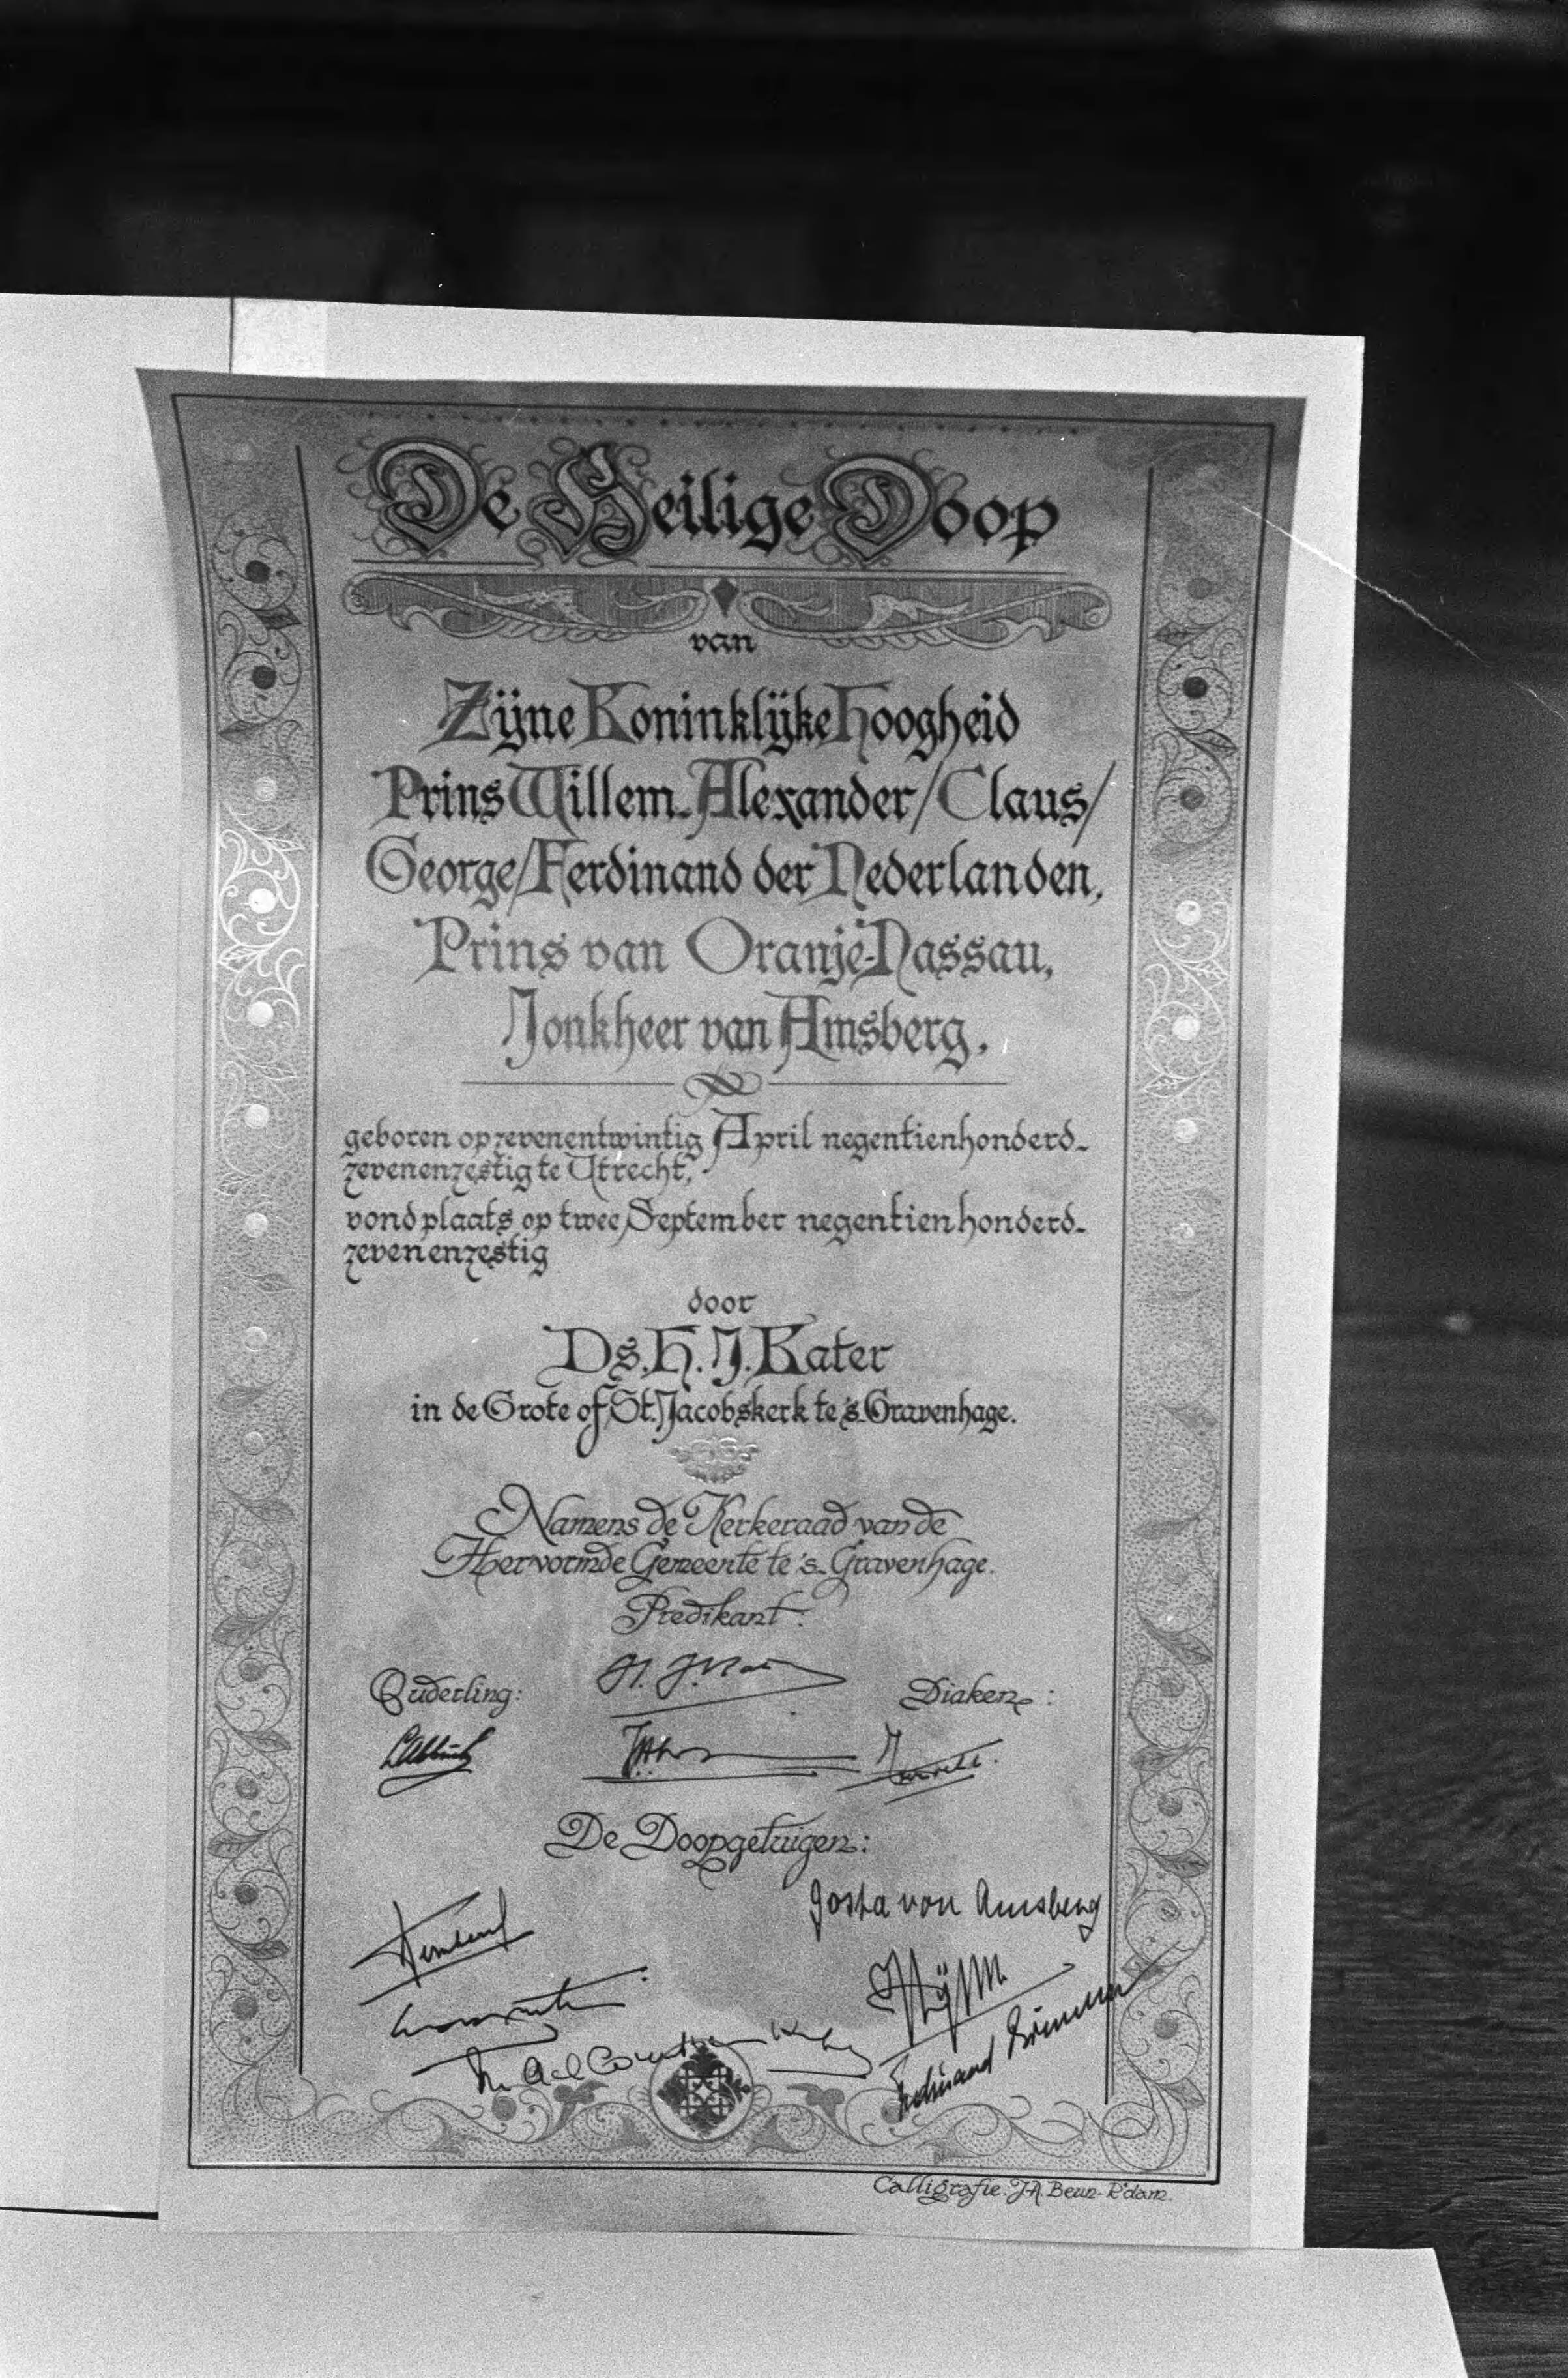 De Heilige Doop
van
Zijne Koninklijke Hoogheid
Prins Willem-Alexander/Claus/
George/Ferdinand der Nederlanden,
Prins van Oranje-Nassau,
Jonkheer van Amsberg,
geboren op zevenentwintig April negentienhonderd-
zevenenzestig te Utrecht,
vond plaats op twee September negentienhonderd-
zevenenzestig
door
Ds. H. J. Kater
in de Grote of St. Jacobskerk te 's-Gravenhage.
Namens de Kerkeraad van de
Hervormde Gemeente te 's-Gravenhage.
Predikant:
H. J. Kater
Ouderling:
Diaken:
De Doopgetuigen:
Gosta von Amsberg
Bernhard
Ferdinand
Calligrafie: J.A. Beun-R'dam.